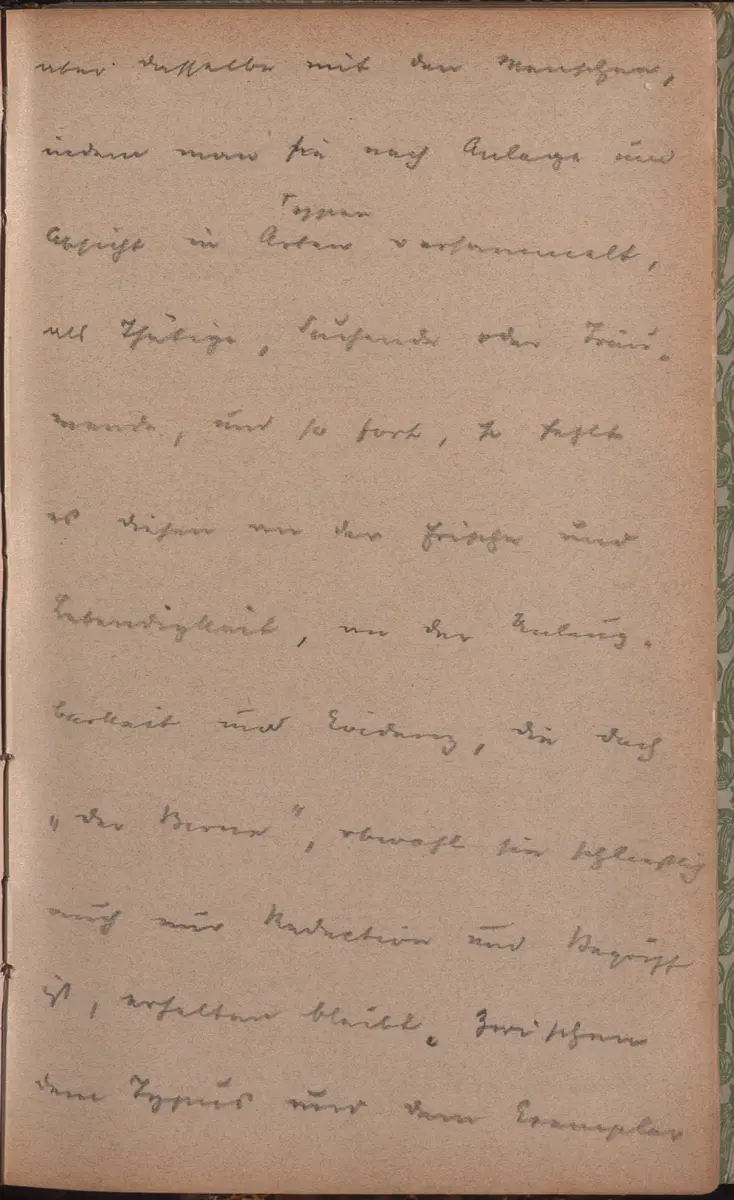 aber dasselbe mit den Menschen,
indem man sie nach Anlage und
Typen
Absicht in Arten versammelt,
als Thätige, Suchende oder Träu-
mende, und so fort, so fehlt
es diesen an der Frische und
Lebendigkeit, an der Unleug-
barkeit und Evidenz, die doch
„der Birne“, obwohl sie schließlich
auch nur Reduction und Begriff
ist, erhalten bleibt. Zwischen
dem Typus und dem Exemplar